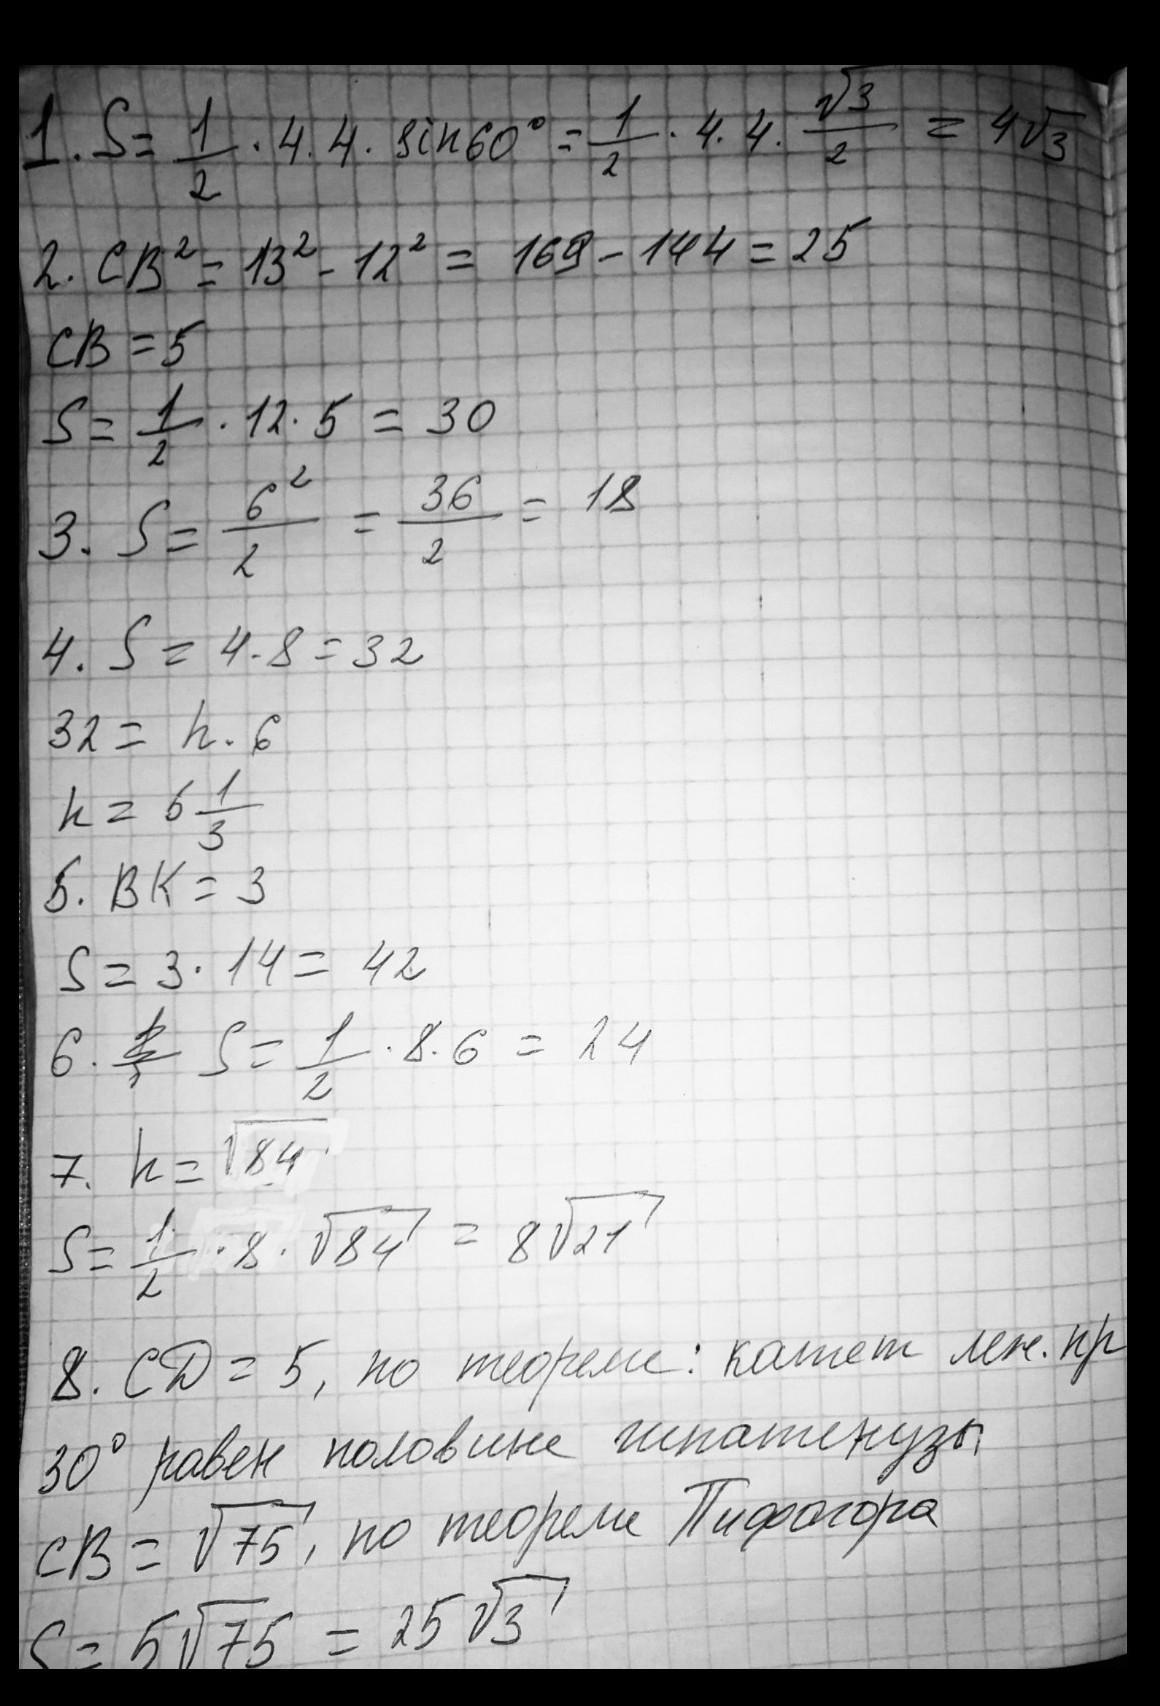 1. S = 1/2 · 4 · 4 · sin60° = 1/2 · 4 · 4 · √3/2 = 4√3
2. CB² = 13² - 12² = 169 - 144 = 25
CB = 5
S = 1/2 · 12 · 5 = 30
3. S = 6²/2 = 36/2 = 18
4. S = 4 · 8 = 32
32 = h · 6
h = 6 1/3
5. BK = 3
S = 3 · 14 = 42
6. S = 1/2 · 8 · 6 = 24
7. h = √84
S = 1/2 · 8 · √84 = 8√21
8. CD = 5, по теореме: катет леж. пр
30° равен половине гипотенузы
CB = √75, по теореме Пифагора
S = 5√75 = 25√3